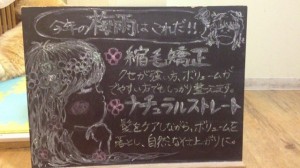 今年の梅雨はこれだ!!
縮毛矯正
クセが強い方、ボリュームが
でやすい方でもしっかり整います。
ナチュラルストレート
髪をケアしながら、ボリュームを
落とし、自然な仕上がりに。